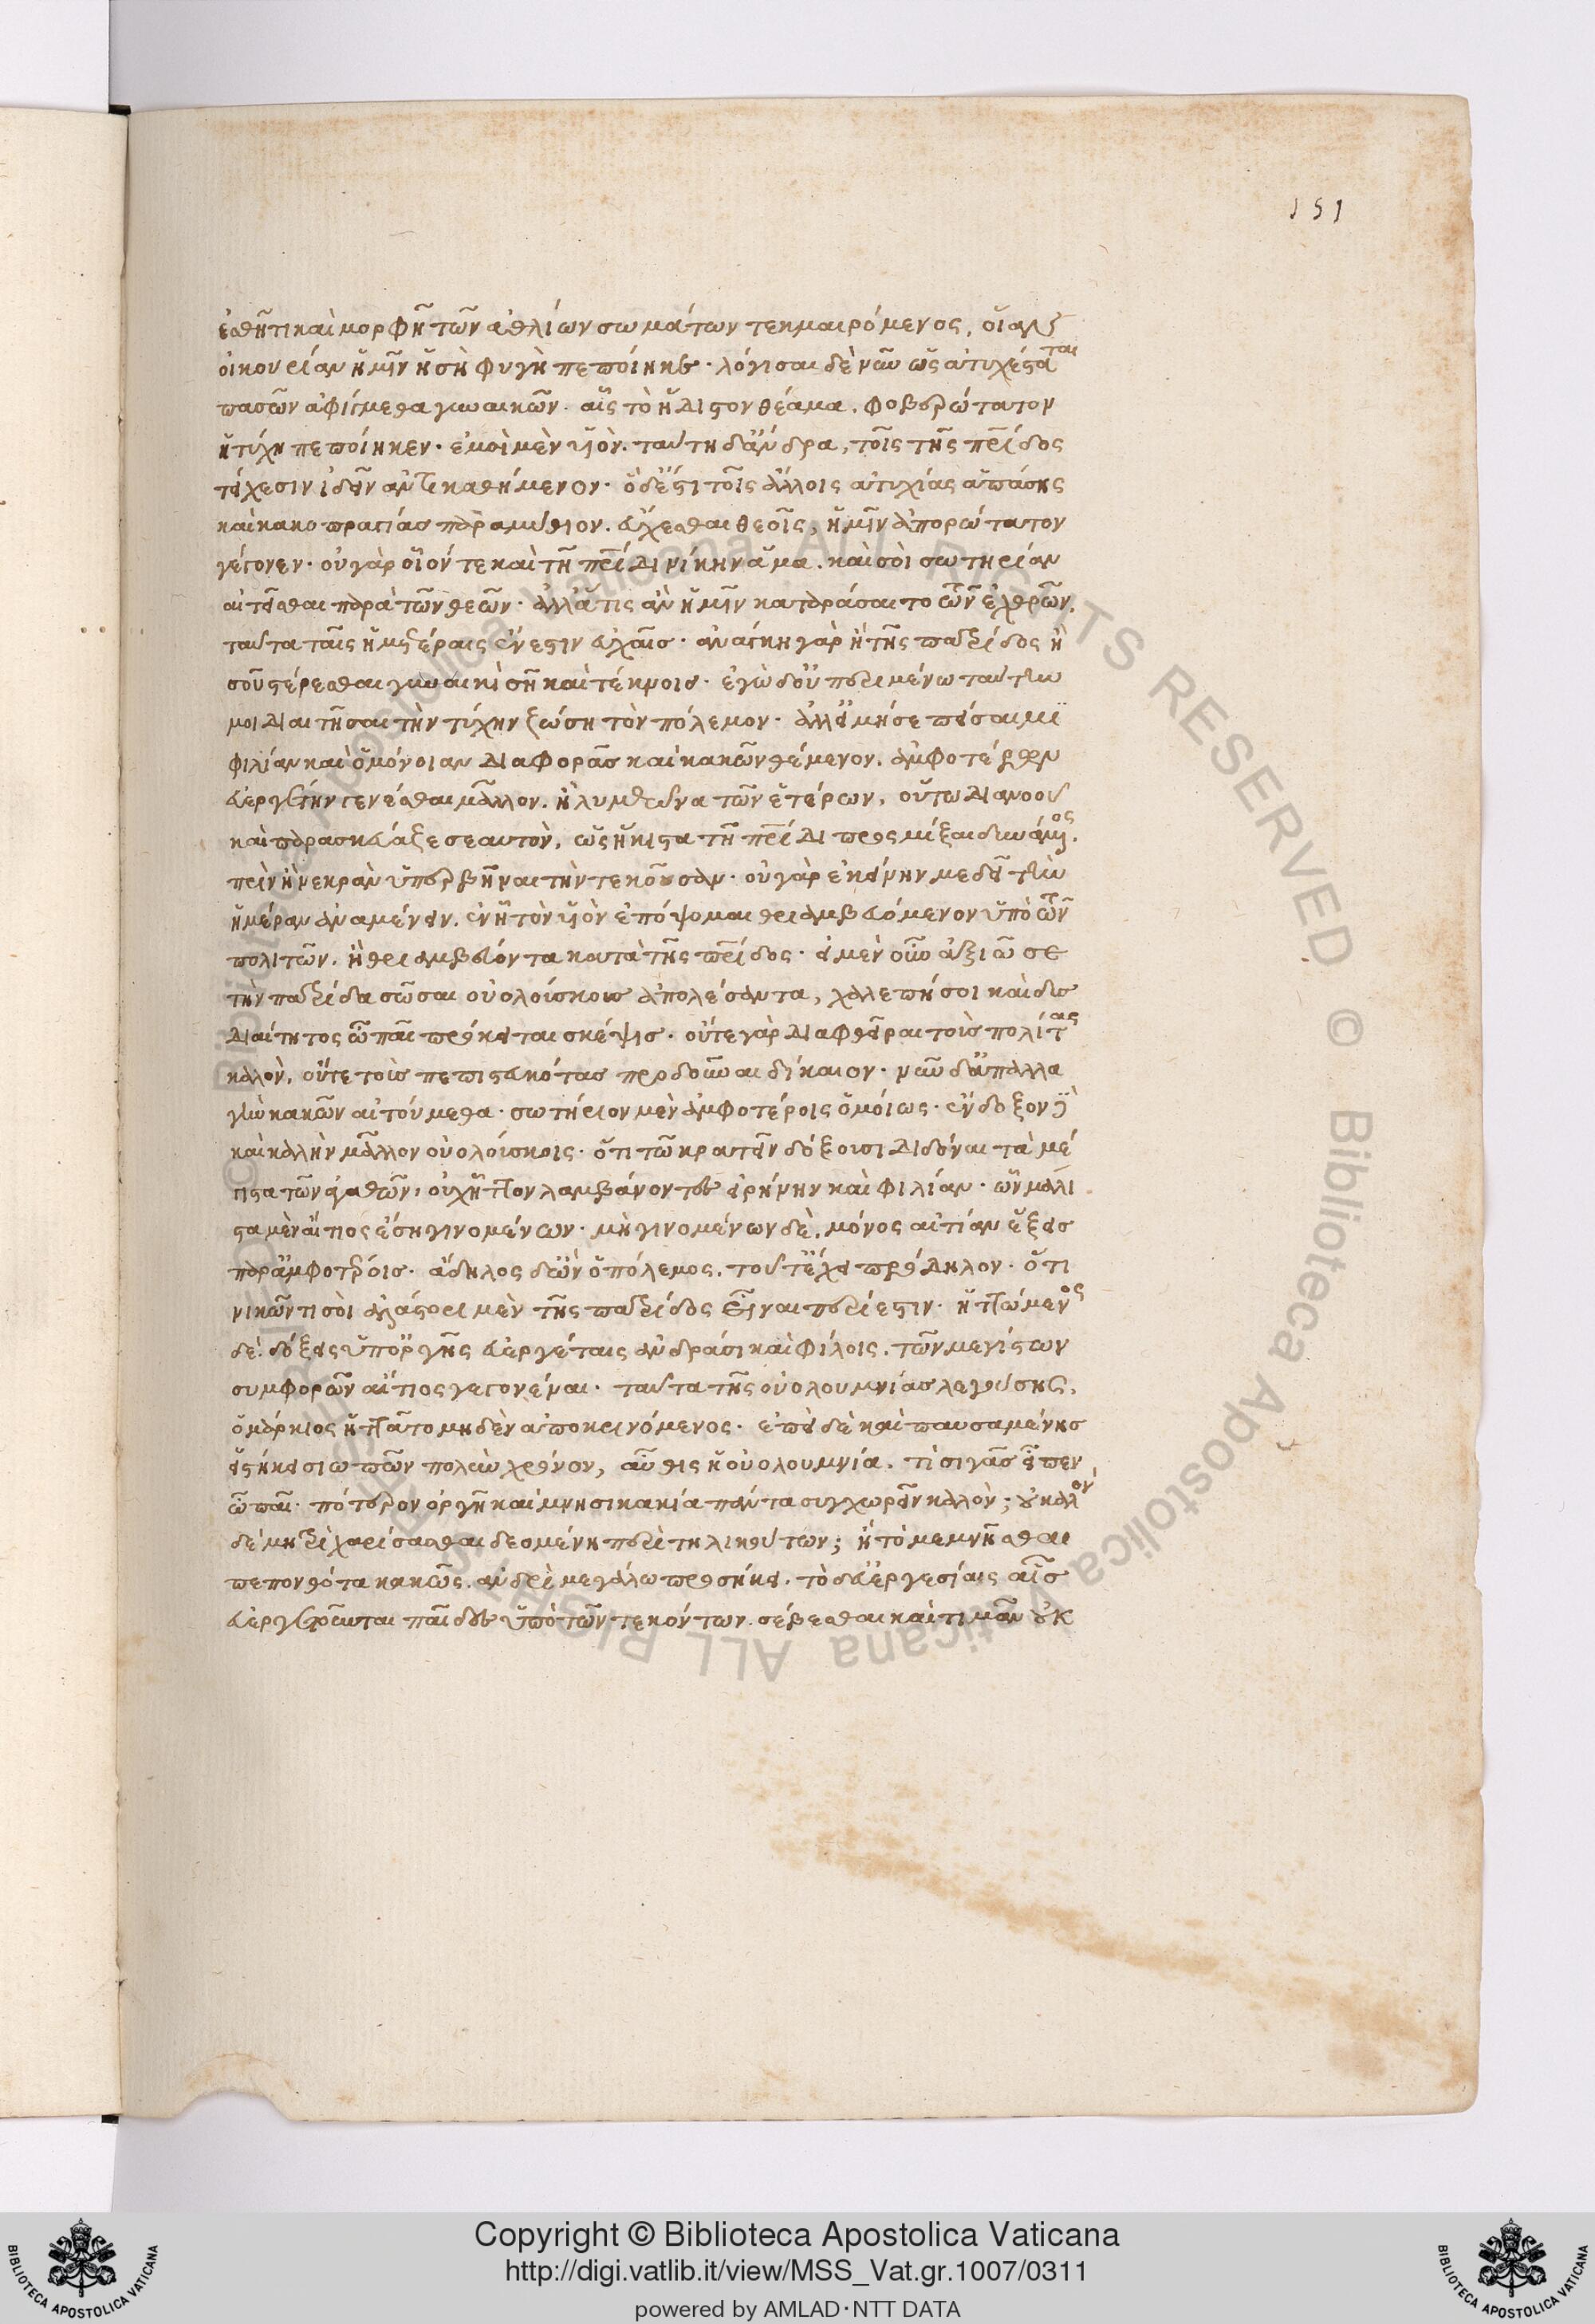 151
ἐσθῆτι καὶ μορφῇ τῶν ἀθλίων σωμάτων τεκμαιρόμενος, οἵαν
οἰκουρίαν ἡμῖν ἡ σὴ φυγὴ πεποίηκε· λόγισαι δὲ νῦν ὡς ἀτυχέσταται
πασῶν ἀφίγμεθα γυναικῶν. αἷς τὸ ἥδιστον θέαμα, φοβερώτατον
ἡ τύχη πεποίηκεν· ἐμοὶ μὲν υἱὸν. ταύτη δ' ἄνδρα, τοῖς τῆς πατρίδος
τείχεσιν ἰδεῖν ἀντικαθήμενον· ὃ δ' ἔστι τοῖς ἄλλοις ἀτυχίας ἁπάσης
καὶ κακοπραγίας παραμύθιον. εὔχεσθαι θεοῖς, ἡμῖν ἀπορώτατον
γέγονεν· οὐ γὰρ οἷόν τε καὶ τῇ πατρίδι νίκην ἅμα. καὶ σοὶ σωτηρίαν
αἰτεῖσθαι παρὰ τῶν θεῶν· ἀλλ' ἅ τις ἂν ἡμῖν καταράσαιτο τῶν ἐχθρῶν.
ταῦτα ταῖς ἡμετέραις ἔνεστιν εὐχαῖς· ἀνάγκη γὰρ ἢ τῆς πατρίδος ἢ
σοῦ στέρεσθαι γυναικὶ σῇ καὶ τέκνοις· ἐγὼ δ' οὐ περιμένω ταύτην
μοι διαιτῆσαι τὴν τύχην ζώσῃ τὸν πόλεμον· ἀλλ' εἰ μή σε πείσαιμι
φιλίαν καὶ ὁμόνοιαν διαφορᾶς καὶ κακῶν θέμενον. ἀμφοτέρων
εὐεργέτην γενέσθαι μᾶλλον. ἢ λυμεῶνα τῶν ἑτέρων, οὕτω διανοοῦ
καὶ παρασκεύαζε σεαυτὸν, ὡς ἥκιστα τῇ πατρίδι προσμίξαι δυνάμενος.
πρὶν ἢ νεκρὰν ὑπερβῆναι τὴν τεκοῦσαν· οὐ γὰρ ἐκείνην με δεῖ τὴν
ἡμέραν ἀναμένειν. ἐν ᾗ τὸν υἱὸν ἐπόψομαι θριαμβευόμενον ὑπὸ τῶν
πολιτῶν. ἢ θριαμβεύοντα κατὰ τῆς πατρίδος· εἰ μὲν οὖν ἀξιῶ σε
τὴν πατρίδα σῶσαι οὐολούσκους ἀπολέσαντα, χαλεπή σοι καὶ δυσ
διαίτητος ὦ παῖ πρόκειται σκέψις. οὔτε γὰρ διαφθεῖραι τοὺς πολίτας
καλὸν, οὔτε τοὺς πεπιστευκότας προδοῦναι δίκαιον· νῦν δ' ἀπαλλα
γὴν κακῶν αἰτούμεθα· σωτήριον μὲν ἀμφοτέροις ὁμοίως· ἔνδοξον δὲ
καὶ καλὴν μᾶλλον οὐολούσκοις· ὅτι τῷ κρατεῖν δόξουσι διδόναι τὰ μέ
γιστα τῶν ἀγαθῶν, οὐχ ἧττον λαμβάνοντες εἰρήνην καὶ φιλίαν· ὧν μάλι
στα μὲν αἴτιος ἔσῃ γινομένων· μὴ γινομένων δὲ, μόνος αἰτίαν ἕξεις
παρ' ἀμφοτέροις· ἄδηλος δ' ὢν ὁ πόλεμος. τοῦτ' ἔχει πρόδηλον· ὅτι
νικῶντι σοὶ ἀλάστορι μὲν τῆς πατρίδος εἶναι περίεστιν· ἡττώμενος
δὲ δόξεις ὑπ' ὀργῆς εὐεργέταις ἀνδράσι καὶ φίλοις, τῶν μεγίστων
συμφορῶν αἴτιος γεγονέναι· ταῦτα τῆς οὐολουμνίας λεγούσης,
ὁ μάρκιος ἠκροᾶτο μηδὲν ἀποκρινόμενος· ἐπεὶ δὲ καὶ παυσαμένης
εἱστήκει σιωπῶν πολὺν χρόνον, αὖθις ἡ οὐολουμνία. τί σιγᾷς εἶπεν
ὦ παῖ· πότερον ὀργῇ καὶ μνησικακίᾳ πάντα συγχωρεῖν καλὸν; οὐ καλὸν
δὲ μητρὶ χαρίσασθαι δεομένῃ περὶ τηλικούτων; ἢ τὸ μεμνῆσθαι
πεπονθότα κακῶς, ἀνδρὶ μεγάλῳ προσήκει. τὸ δ' εὐεργεσίαις αἷς
εὐεργετοῦνται παῖδες ὑπὸ τῶν τεκόντων. σέβεσθαι καὶ τιμᾶν οὐκ
Copyright © Biblioteca Apostolica Vaticana
http://digi.vatlib.it/view/MSS_Vat.gr.1007/0311
powered by AMLAD·NTT DATA